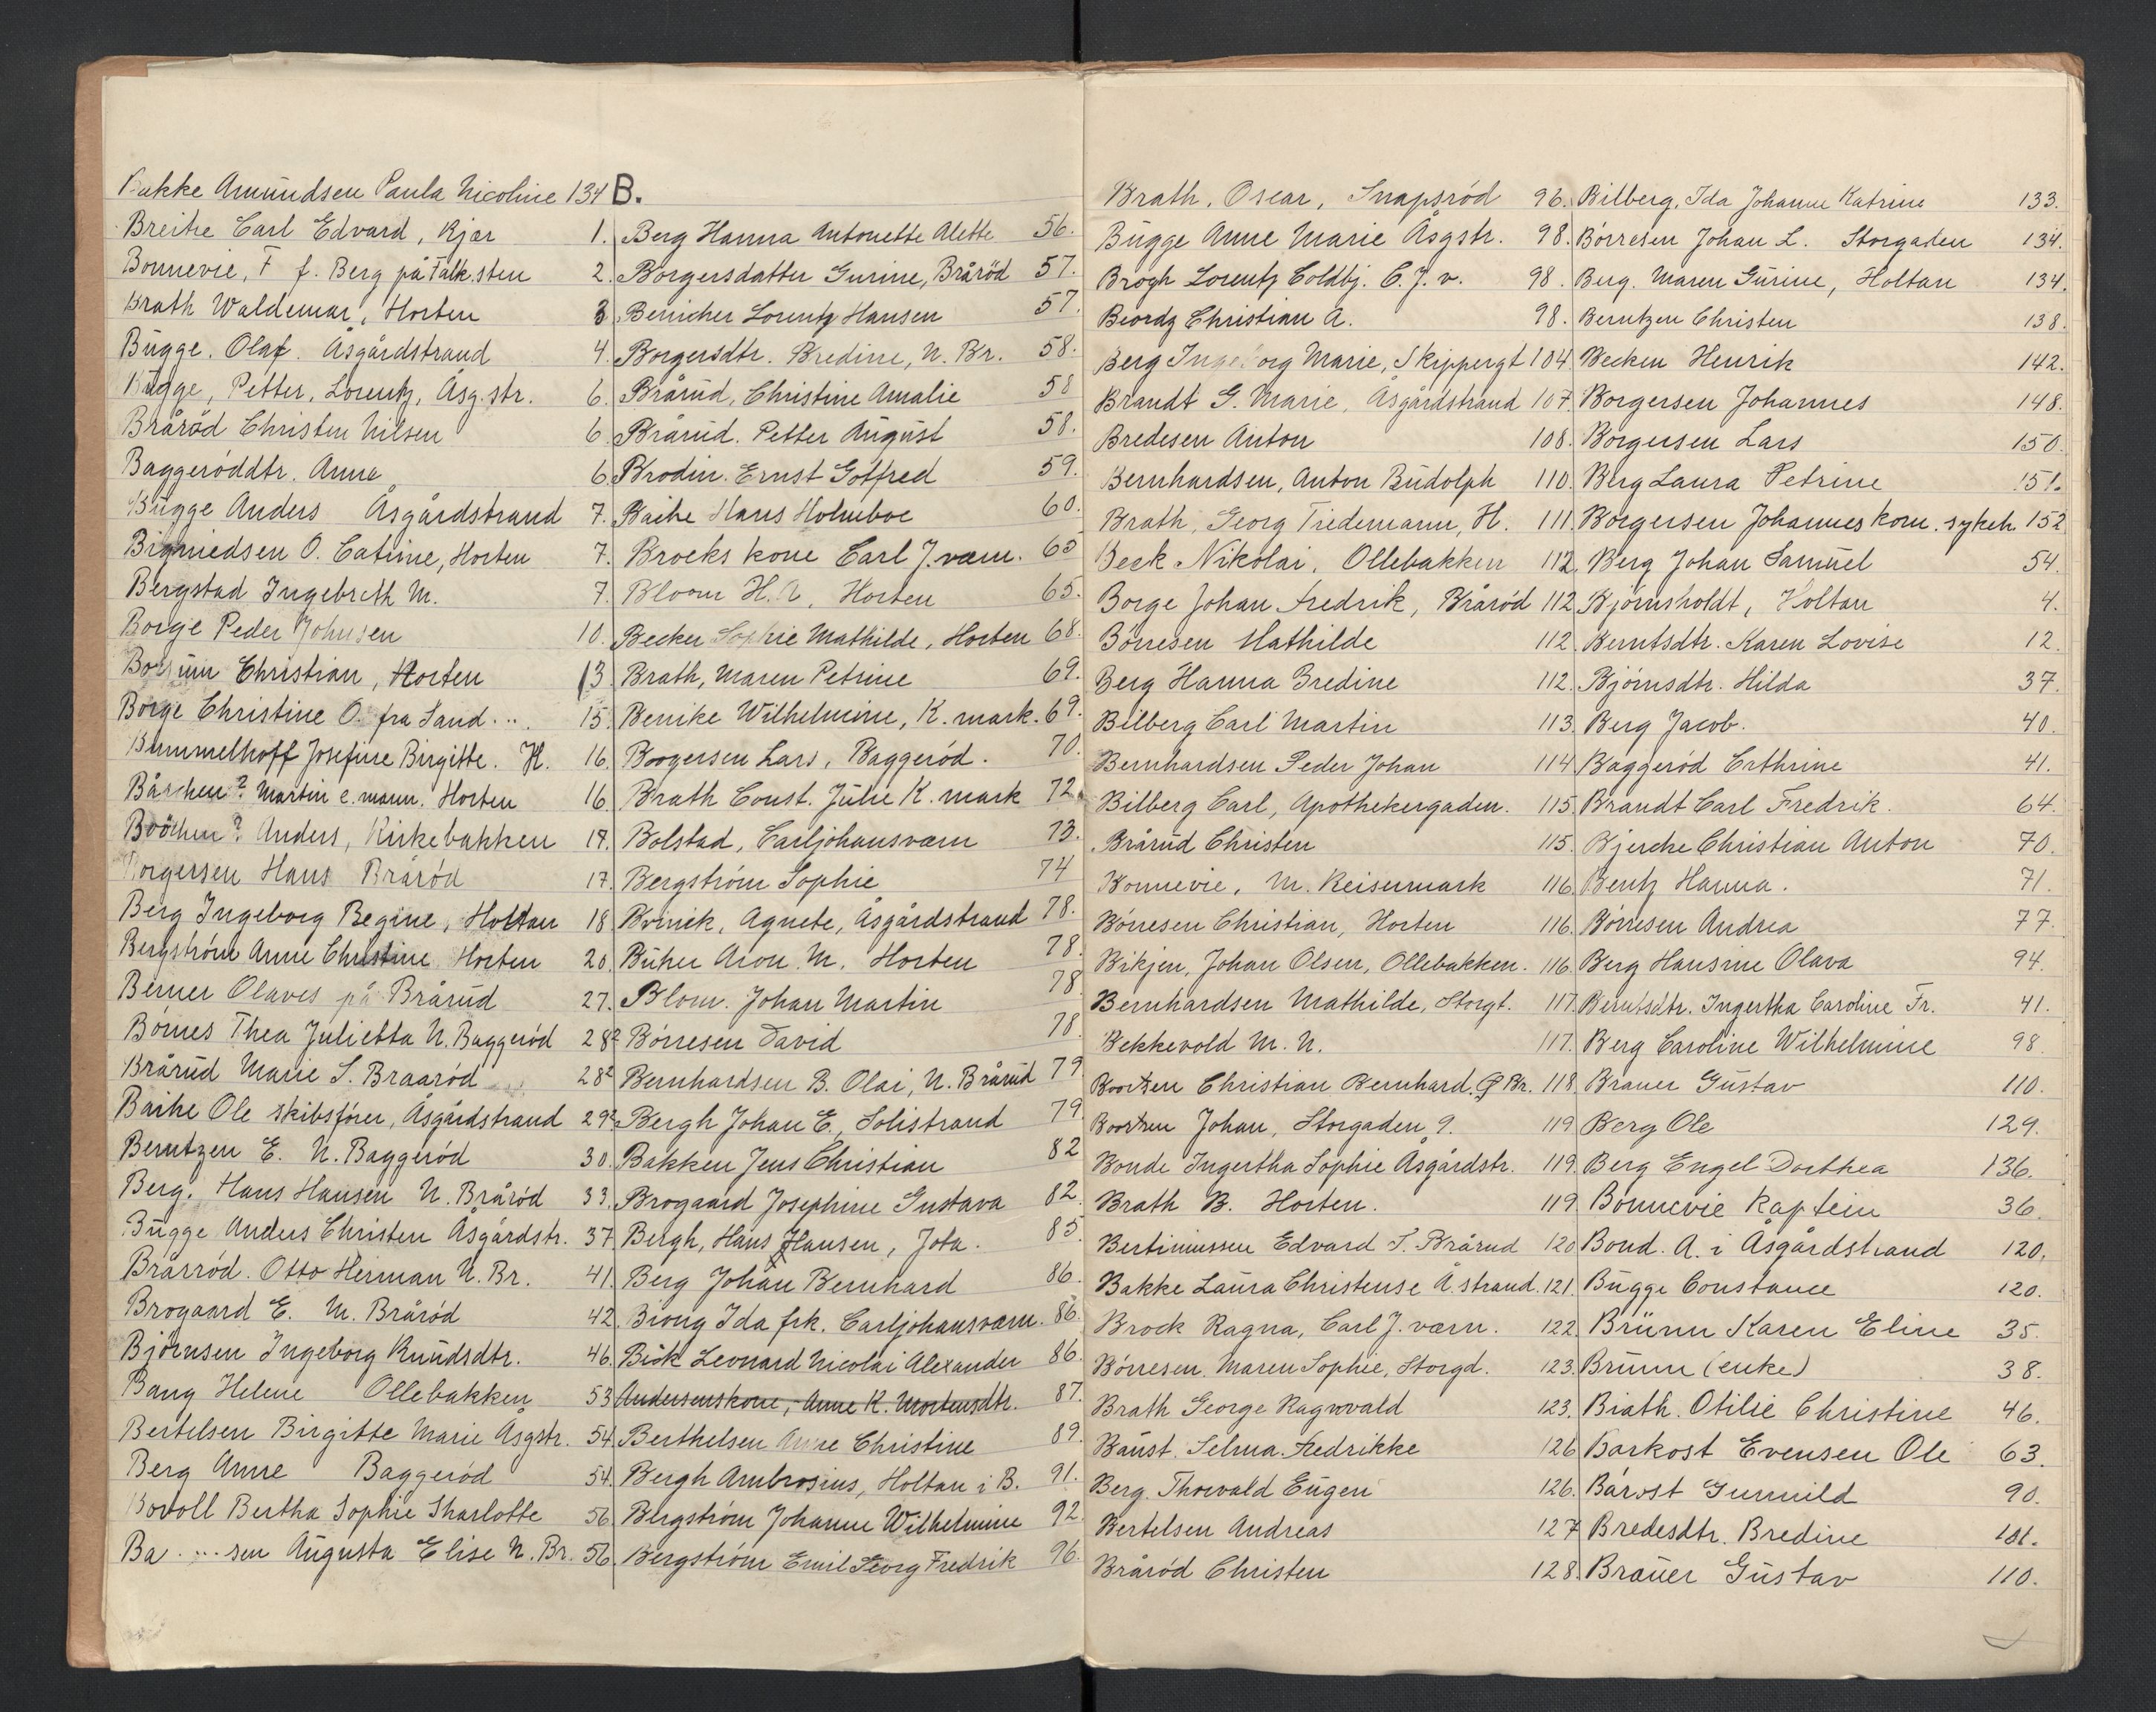 Bakke Amundsen Paula Nicoline 134
B.
Breihe Carl Edvard, Kjær 1.
Bonnevie, F f. Berg på Falk.sten 2.
Brath Waldemar, Horten 3
Bügge. Olaf. Åsgårdstrand 4.
Bügge, Petter, Lorentz, Åsg.str. 6.
Bråröd Christen Nilsen 6.
Baggeröddtr. Anna 6.
Bügge Anders Åsgårdstrand 7.
O. Catrine, Horten 7.
Bergstad Ingebreth M. 7.
Borge Peder Johnsen 10.
Christian, Horten 13.
Borge Christine O. fra Sand... 15.
Bummelhoff Josefine Birgitte. H. 16.
Båschen? Martin e.mann. Horten 16.
Boöthen? Anders, Kirkebakken 17.
Borgersen Hans Bråröd 17.
Berg Ingeborg Regine, Holtan 18
Bergström Anne Christine Horten 20.
Berner Olaves på Brårüd 27.
Börnes Thea Julietta N. Baggeröd 28²
Brårüd Marie S. Braaröd 28²
Baihe Ole skibsfører, Åsgårdstrand 29²
Berntzen E. N. Baggeröd 30.
Berg. Hans Hansen N. Bråröd 33.
Bügge Anders Christen Åsgårdstr. 37
Brårröd. Otto Herman N. Br. 41.
Brogaard E. M. Bråröd 42.
Björnsen Ingeborg Knüdsdtr. 46.
Bang Helene Ollebakken 53
Bertelsen Birgitte Marie Åsgstr. 54.
Berg Anne Baggeröd 54.
Bovoll Bertha Sophie Sharlotte 56.
Ba....sen Aügusta Elise N. Br. 56.
Berg Hanna Antonette Alette 56.
Borgersdatter Gurine, Bråröd 57.
Benicher Lorentz Hansen 57.
Borgersdtr. Bredine, N. Br. 58.
Brårüd, Christine Amalie 58
Brårüd. Petter Aügüst 58.
Brodin. Ernst Gotfred 59.
Baihe Hans Holmboe 60.
Brocks kone Carl J. værn. 65
Bloom H.A, Horten 65.
Becker Sophie Mathilde, Horten 68.
Brath, Maren Petrine 69.
Benike Wilhelmine, K. mark. 69.
Boogersen Lars, Baggeröd. 70.
Brath Const. Jülie K. mark 72.
Bolstad, Carljohansværn 73.
Bergström Sophie 74
Agnete, Åsgårdstrand 78.
Büher Aron M. Horten 78.
Blom. Johan Martin 78
Börresen David 78.
Bernhardsen B. Olai, N. Brårüd 79.
Bergh Johan E., Solistrand 79.
Bakken Jens Christian 82
Brogaard Josephine Gustava 82.
Bergh, Hans Hansen, Jota. 85.
Berg Johan Bernhard 86.
Brong Ida frk. Carljohansværn. 86.
Bisk Leonard Nicolai Alexander 86.
Andersenskone, Anne K. Mortensdtr. 87.
Berthelsen Anne Christine 89.
Bergh Ambrosius, Holtan i B. 91.
Bergström Johanne Wilhelmine 92.
Bergström Emil Georg Fredrik 96.
Brath, Oscar, Snapsröd 96.
Bügge Anne Marie Åsgstr. 98.
Brogh Lorentz Coldbj. C. J. v. 98.
Beordz Christian A. 98.
Berg Ingeborg Marie, Skippergt 104
Brandt G. Marie, Åsgårdstrand 107.
Bredesen Anton 108.
Bernhardsen, Anton Büdolph 110.
Brath, Georg Tiedemann, H. 111.
Beck Nikolai, Ollebakken 112.
Borge Johan Fredrik, Bråröd 112.
Börresen Mathilde 112.
Berg Hanna Bredine 112.
Bilberg Carl Martin 113.
Bernhardsen Peder Johan 114.
Bilberg Carl, Apothekergaden. 115.
Brårüd Christen 115.
Bonnevie, M. Keisermark 116.
Börresen Christian, Horten 116.
Bikjen, Johan Olsen, Ollebakken. 116.
Bernhardsen Mathilde, Storgt. 117.
Bekkevold M. N. 117.
Christian Bernhard. Br. 118.
Johan, Storgaden 9. 119
Bonde Ingertha Sophie Åsgårdstr. 119.
Brath B. Horten. 119
Bertinussen Edvard S. Brårud 120
Bakke Laüra Christense Å. strand. 121.
Brock Ragna, Carl J. værn. 122.
Börresen. Maren Sophie, Storgd. 123.
Brath George Ragnvald 123.
Baüst. Selma. Fredrikke 126
Berg. Thorvald Eügen 126.
Bertelsen Andreas 127
Bråröd Christen 128.
Bilberg, Ida Johanne Katrine 133.
Börresen Johan L. Storgaden 134.
Berg. Maren Gürine, Holtan 134.
Berntzen Christen 138.
Becken Henrik 142.
Borgersen Johannes 148.
Borgersen Lars 150.
Berg Laura Petrine 151.
Borgersen Johannes kom. sykeh. 152
Berg Johan Samüel 54.
Bjørnsholdt, Holtan 4.
Berntsdtr. Karen Lovise 12.
Bjørnsdtr. Hilda 37.
Berg Jacob. 40.
Baggeröd Cathrine 41.
Brandt Carl Fredrik. 64.
Bjerche Christian Anton 70.
Bentz Hanna. 71.
Börresen Andrea 77.
Berg Hansine Olava 94.
Berntsdtr. Ingertha Caroline Fr. 41.
Berg Caroline Wilhelmine 98
Brauer Güstav 110.
Berg Ole 129.
Berg Engel Dorthea 136.
Bonnevie Kaptein 36.
Bond. A. i Åsgårdstrand 120.
Bügge Constance 120.
Brünn Karen Eline 35.
Brünn (enke) 38.
Brath. Otilie Christine 46.
Barkost Evensen Ole 63.
Bårost Gunnild 90.
Bredesdtr. Bredine 101.
Braüer Güstav 110.